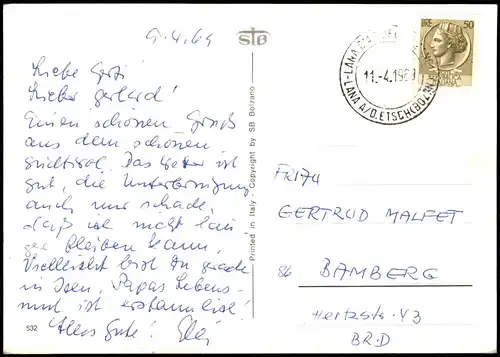 9.4.69
Liebe Gerti!
Lieber Gerhard!
Einen schönen Gruß
aus dem schönen
Südtirol. Das Wetter ist
gut, die Unterbringung
auch nur schade,
daß ich nicht län
ger bleiben kann,
Vielleicht bist Du gerade
in Isen, Papas Lebens-
mut ist erstaunlich!
Alles Gute!
532
STB
Printed in Italy · Copyright by SB Bolzano
LIRE 50
11.-4.1969
LANA A/D.ETSCH(BOZEN)
FR174
GERTRUD MALFET
86 BAMBERG
Hertzstr. 43
BRD